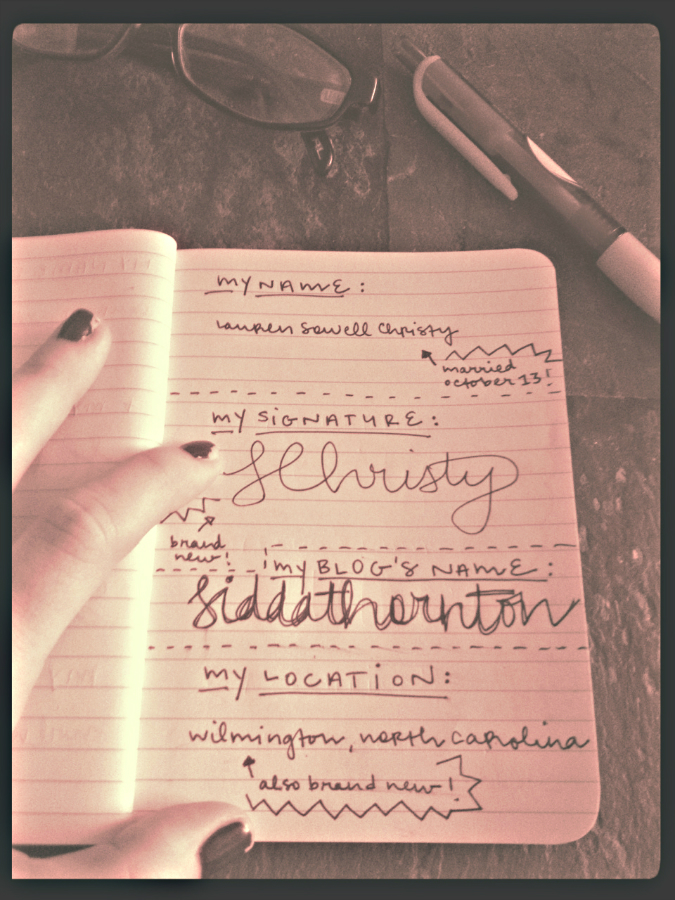 my NAME:
Lauren Sowell Christy
married
october 13!
my SiGNATURE:
LChristy
brand
new!
my BLOG'S NAME:
siddathornton
my LOCATiON:
wilmington, north carolina
also brand new!